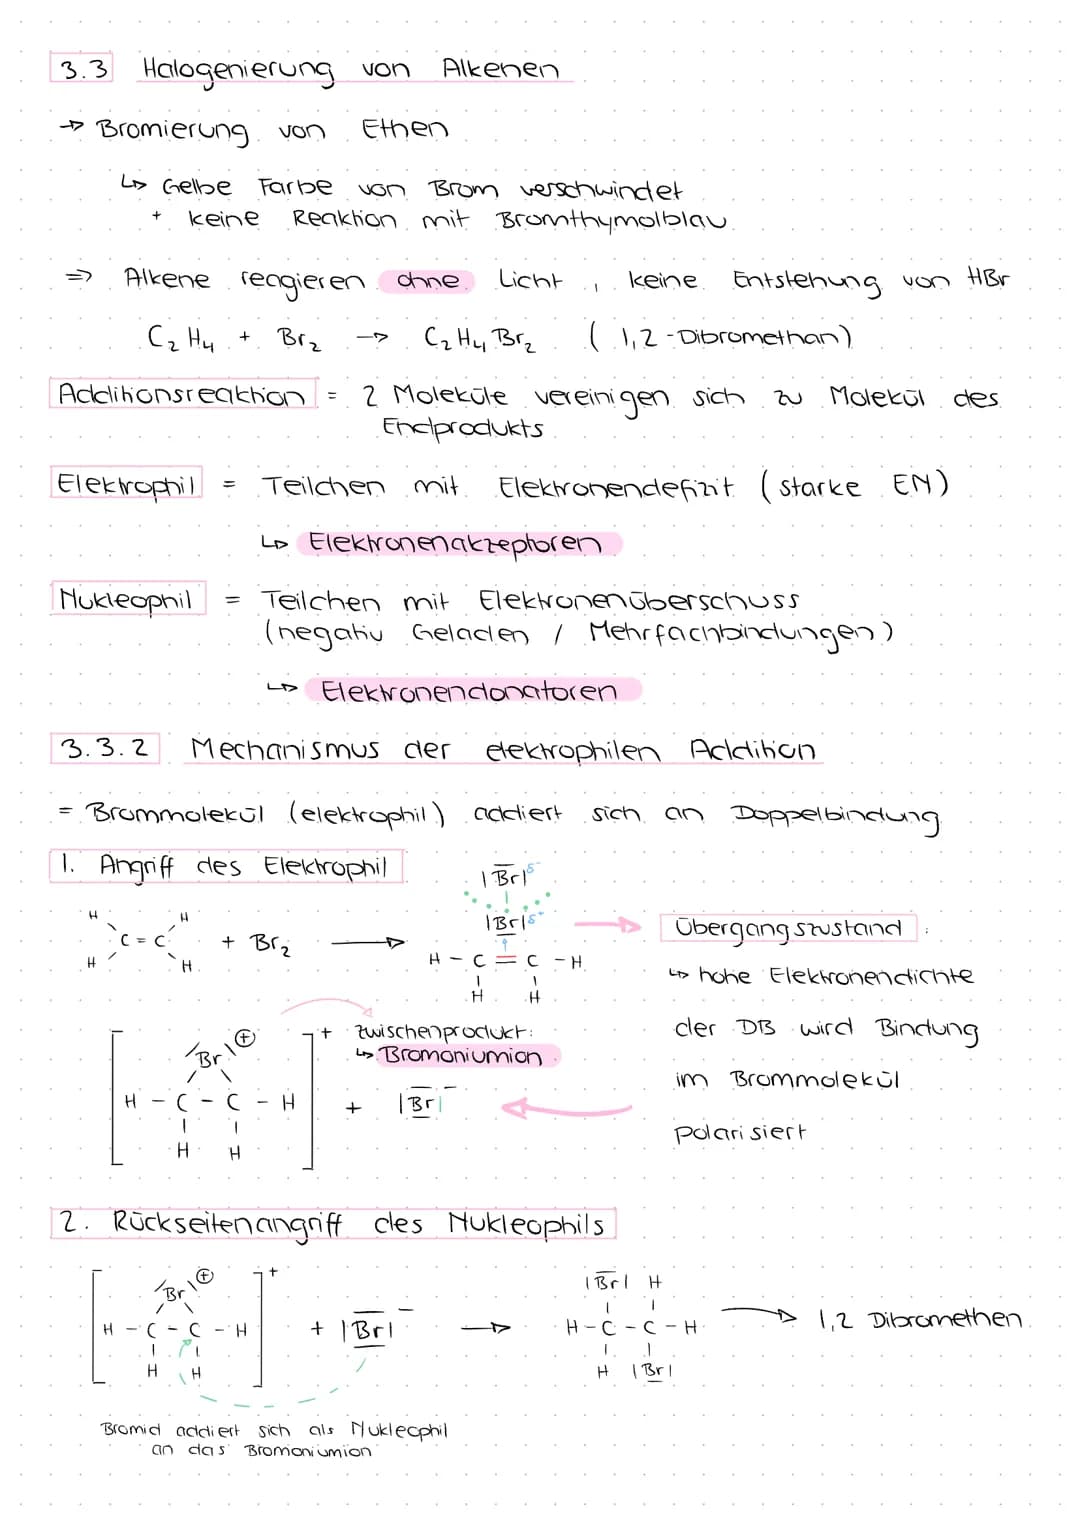 3.3 Halogenierung von Alkenen
→ Bromierung von Ethen
↳ Gelbe Farbe von Brom verschwindet
+ keine Reaktion mit Bromthymolblau
=> Alkene reagieren ohne Licht , keine Entstehung von HBr
C₂H₄ + Br₂ → C₂H₄Br₂ (1,2-Dibromethan)
Additionsreaktion = 2 Moleküle vereinigen sich zu Molekül des
Endprodukts
Elektrophil = Teilchen mit Elektronendefizit (starke EN)
↳ Elektronenakzeptoren
Nukleophil = Teilchen mit Elektronenüberschuss
(negativ Geladen / Mehrfachbindungen)
↳ Elektronendonatoren
3.3.2 Mechanismus der elektrophilen Addition
= Brommolekül (elektrophil) addiert sich an Doppelbindung
1. Angriff des Elektrophil
|Br| δ⁻
|Br| δ⁺
H H
C = C + Br₂ →
H H
H - C = C - H
H H
Übergangszustand :
↳ hohe Elektronendichte
der DB wird Bindung
im Brommolekül
polarisiert
[ Br ⊕ ]⁺
H - C - C - H
H H
Zwischenprodukt:
↳ Bromoniumion
+ |Br|⁻
2. Rückseitenangriff des Nukleophils
[ Br ⊕ ]⁺
H - C - C - H + |Br|⁻ →
H H
|Br| H
H - C - C - H → 1,2 Dibromethen
H |Br|
Bromid addiert sich als Nukleophil
an das Bromoniumion